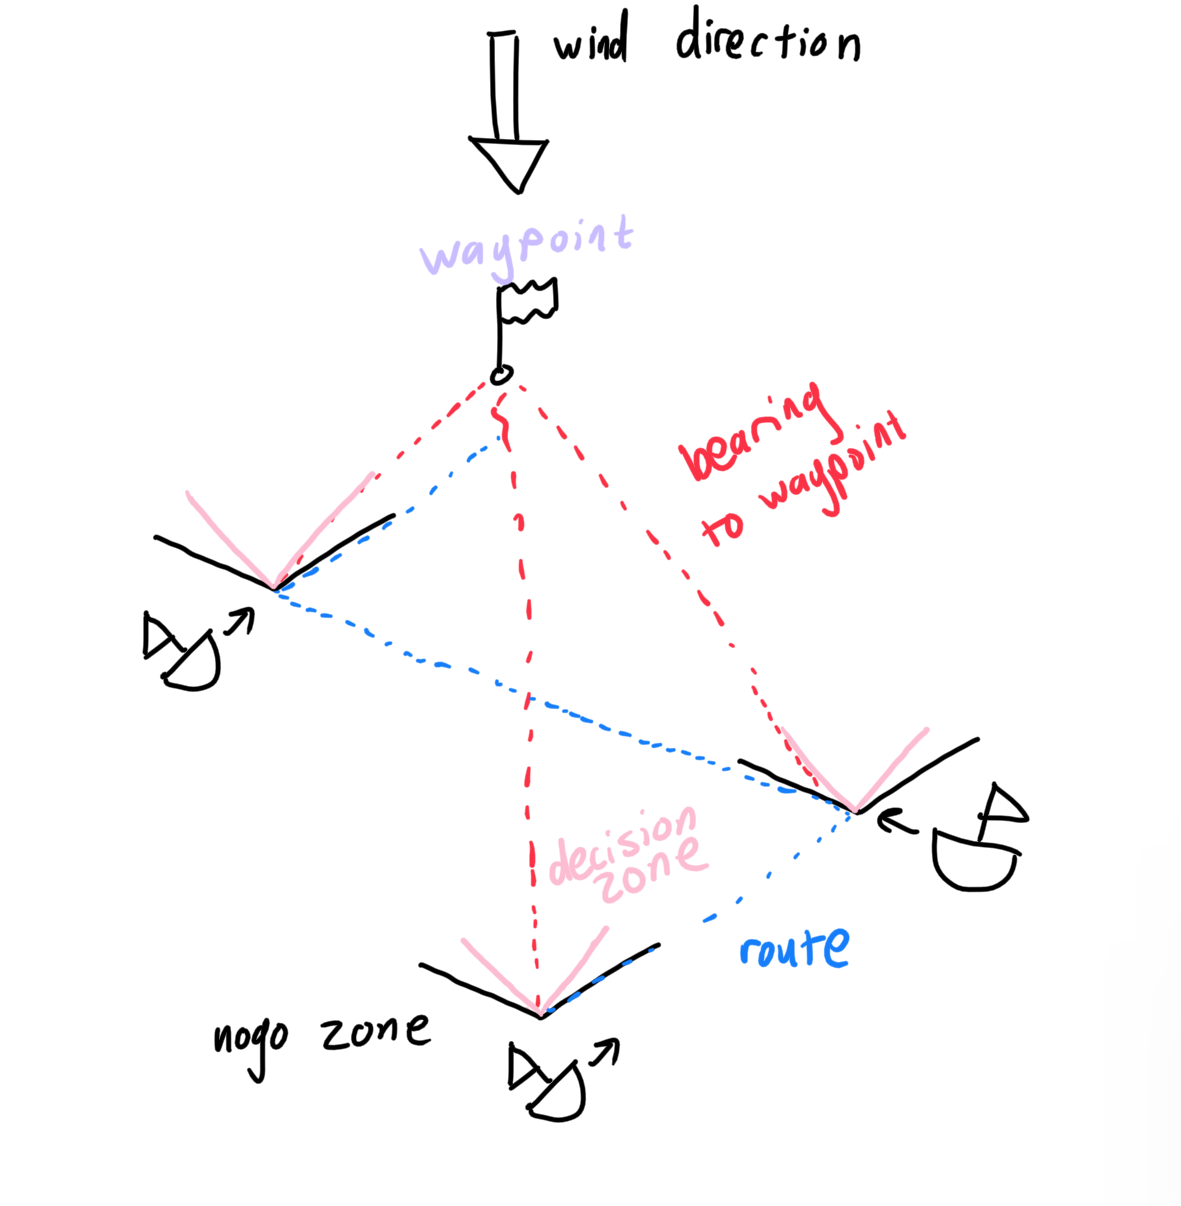 wind direction
waypoint
bearing
to waypoint
decision
zone
route
nogo zone